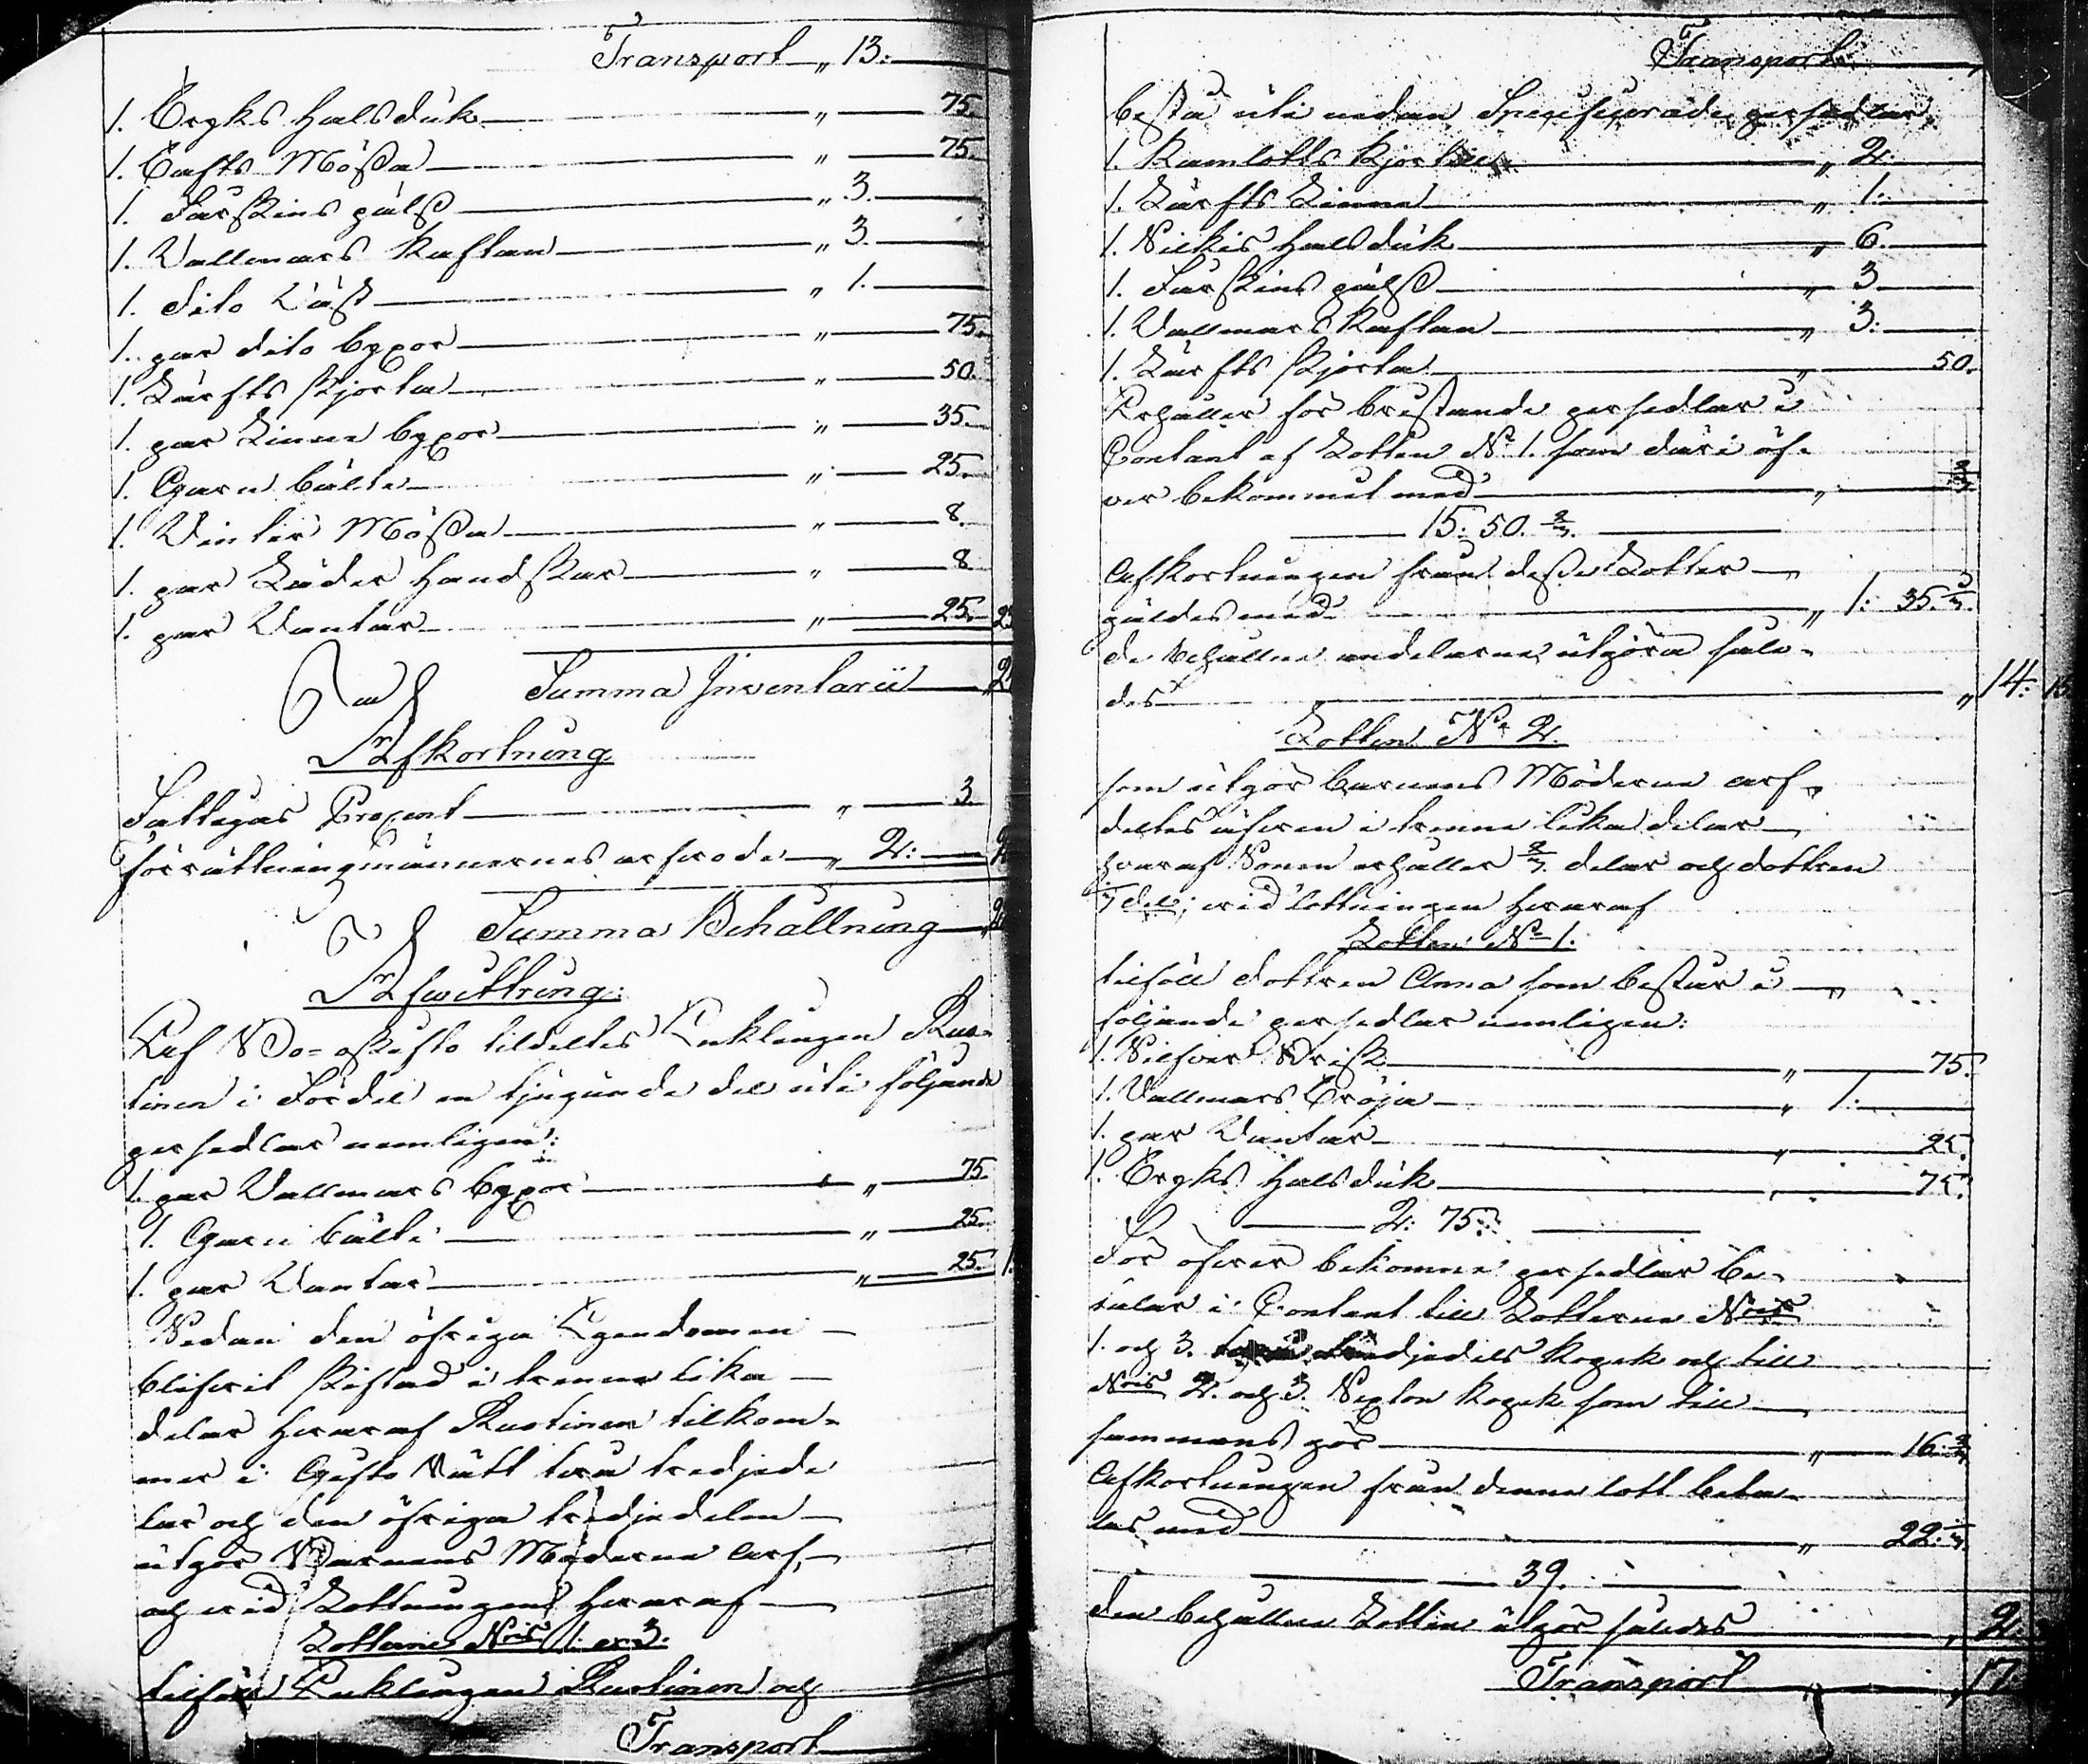 Transport " 13:
1. Tryks halsduk " 75.
1. Tafts Mössa " 75.
1. Fårskins päls " 3.
1. Vallmars Kaftan " 3.
1. dito Väst " 1.
1. par dito byxor " 75.
1. Lärfts skjorta " 50.
1. par Linne byxor " 35.
1. Garn bälte " 25.
1. Vinter Mössa " 8.
1. par Läder handskar " 8
1. par Vantar " 25.
Summa Inventarii
Afkortning
Fattigas Procent " 3.
förrättningsmännernes arfvode " 2:
Summa Behållning
Afwittring:
tilldeltes Enklingen Rus-
tinen i Fördel en tjugunde del uti följande
persedlar nemligen:
1. par Vallmars byxor " 75.
1. Garn bälte " 25.
1. par Vantar " 25.
Sedan den öfriga Egendomen
blifvit skiftad i trenne lika
delar hvaraf Rustinen tilkom-
mer i Gifto Rätt tvu tredjede
lar och den öfriga tredjedelen
utgör Barnens Möderne arf,
och vid Lottningen hvaraf
Lotterne Nris 1. och 3.
tilföll Enklingen Rustinen och
Transport
Transport
bestå uti nedan Specificerade persedlar
1. Kamlotts Kjortel " 2.
1. Lärfts Linne " 1.
1. Silkis halsduk " 6.
1. Fårskins päls " 3.
1. Vallmars Kaftan " 3.
1. Lärfts skjorta " 50.
Erhåller för bristande persedlar i
Contant af Lotten No 1. som däri öf-
ver bekommit med " 2/3
15: 50. 2/3.
Afkortningen från dessa Lotter
gäldes med " 1. 35. 2/3.
de behållne andelarne utgöra såle-
des " 14: 15
Lotten No 2.
som utgör barnens Möderne arf
deltes äfven i trenne lika delar
hvaraf Sonen erhåller 2/3. delar och dottren
1/3 del; vid lottningen hvaraf
Lotten No 1.
tilföll dottren Anna som består i
följande persedlar nemligen:
1. Silfver Brisk " 75.
1. Vallmars Tröja " 1.
1. par Vantar " 25.
1. Tryks halsduk " 75.
2: 75.
För öfver bekomne persedlar be-
talar i Contant till Lotterne Nris
1. och 3. tredjedels Kopek och till
Nris 2. och 3. Sexton Kopek som till
sammans gör " 16. 2/3
Afkortningen från denna lott beta-
las med " 22. 1/3.
39.
den behållne Lotten utgör således " 2.
Transport " 17.